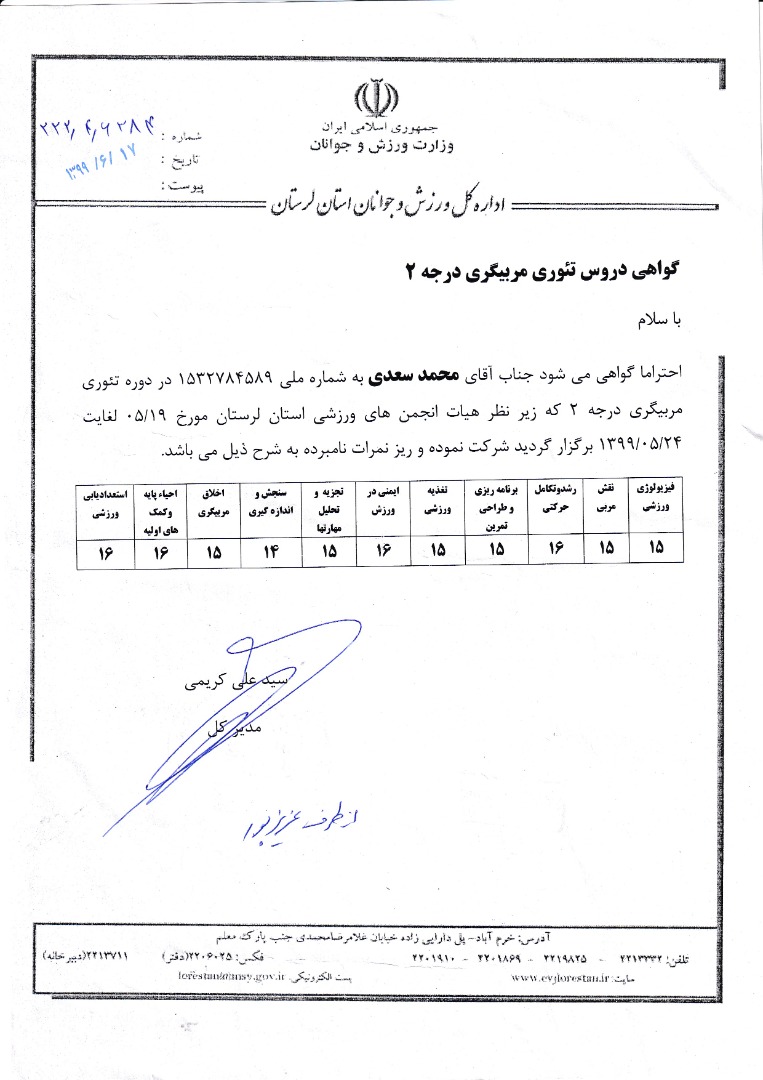 جمهوری اسلامی ایران
وزارت ورزش و جوانان
شماره : ۲۲۲/۴/۶۲۸۴
تاریخ : ۱۳۹۹/۶/۱۷
پیوست :
اداره کل ورزش و جوانان استان لرستان
گواهی دروس تئوری مربیگری درجه ۲
با سلام
احتراما گواهی می شود جناب آقای محمد سعدی به شماره ملی ۱۵۳۲۷۸۴۵۸۹ در دوره تئوری
مربیگری درجه ۲ که زیر نظر هیات انجمن های ورزشی استان لرستان مورخ ۰۵/۱۹ لغایت
۱۳۹۹/۰۵/۲۴ برگزار گردید شرکت نموده و ریز نمرات نامبرده به شرح ذیل می باشد.
فیزیولوژی ورزشی | نقش مربی | رشدوتکامل حرکتی | برنامه ریزی و طراحی تمرین | تغذیه ورزشی | ایمنی در ورزش | تجزیه و تحلیل مهارتها | سنجش و اندازه گیری | اخلاق مربیگری | احیاء پایه وکمک های اولیه | استعدادیابی ورزشی
۱۵ | ۱۵ | ۱۶ | ۱۵ | ۱۵ | ۱۶ | ۱۵ | ۱۴ | ۱۵ | ۱۶ | ۱۶
سید علی کریمی
مدیر کل
از طرف عزیزپور
آدرس: خرم آباد- پل دارایی زاده خیابان غلامرضامحمدی جنب پارک معلم
تلفن: ۲۲۱۳۳۳۲ - ۲۲۱۹۸۲۵ - ۲۲۰۱۸۶۹ - ۲۲۰۱۹۱۰ فکس: ۲۲۰۶۰۲۵(دفتر) ۲۲۱۳۷۱۱(دبیرخانه)
سایت: www.evjlorestan.ir پست الکترونیکی: